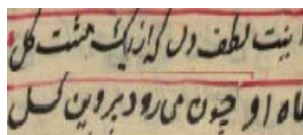 اینت لطف دل که از یک مشت گل
ماه او چون می رود پروین گسل